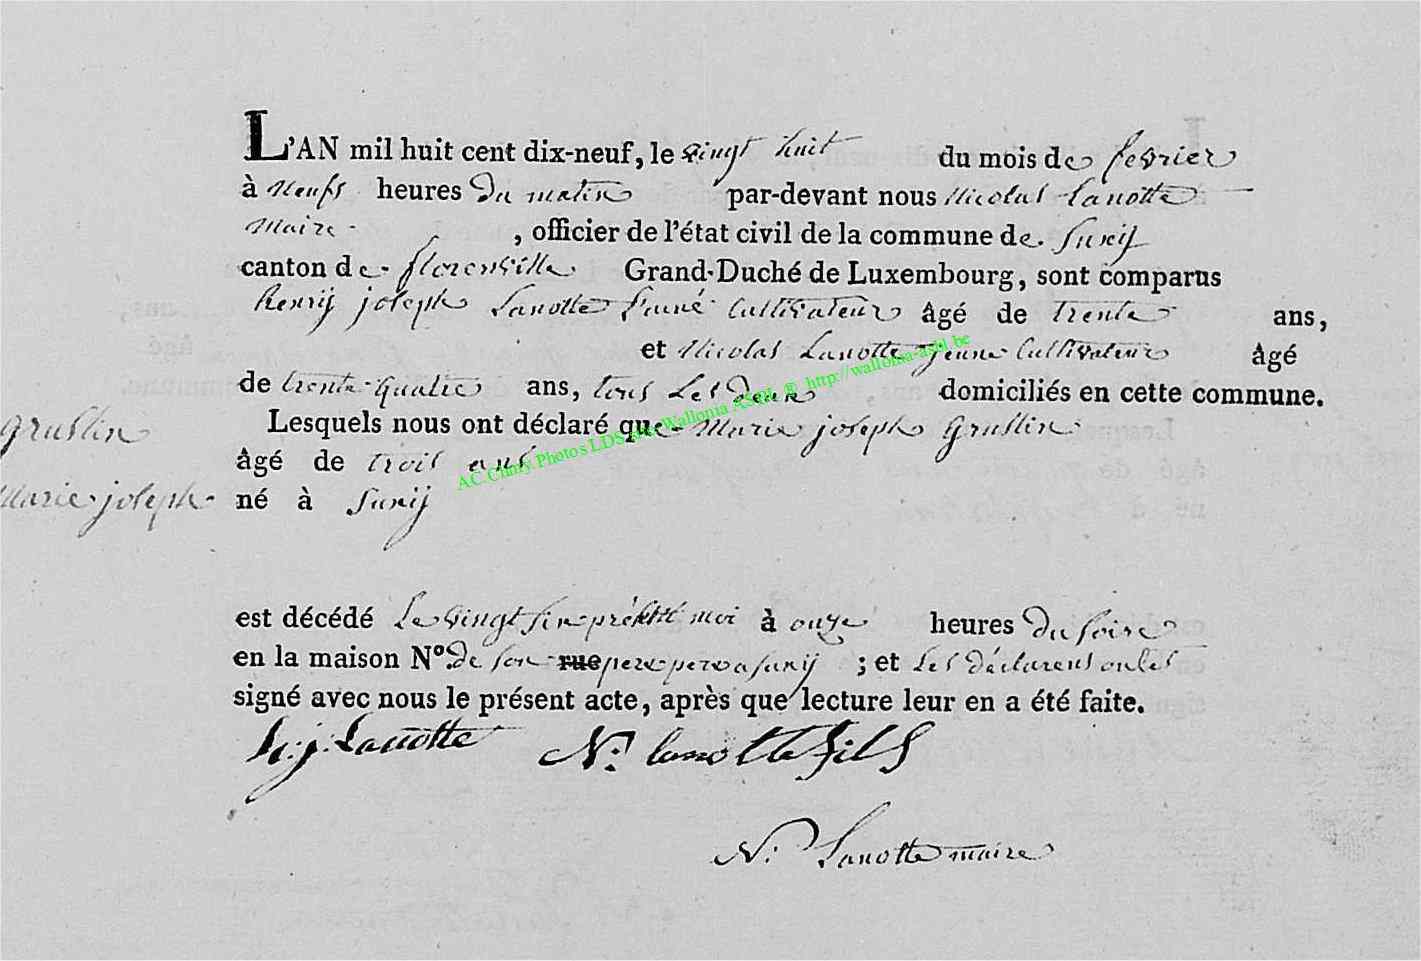 L'AN mil huit cent dix-neuf, le vingt huit du mois de fevrier
à neufs heures du matin par-devant nous Nicolas Lanotte
Maire , officier de l'état civil de la commune de Suxij
canton de florenville Grand-Duché de Luxembourg, sont comparus
henrij joseph Lanotte l'ainé Cultivateur âgé de trente ans,
et Nicolas Lanotte jeune Cultivateur âgé
de trente quatre ans, tous les deux domiciliés en cette commune.
Lesquels nous ont déclaré que Marie joseph Gruslin
âgé de trois ans
né à Suxij
Gruslin
Marie joseph
est décédé Le vingt six présent moi à onze heures du soire
en la maison N°. de son rue pere a suxij ; et les déclarens
signé avec nous le présent acte, après que lecture leur en a été faite.
h: j: Lanotte N: lanotte fils
N: Lanotte maire
AC.Chiny.Photos LDS Wallonia ASBL ® http://wallonia-asbl.be